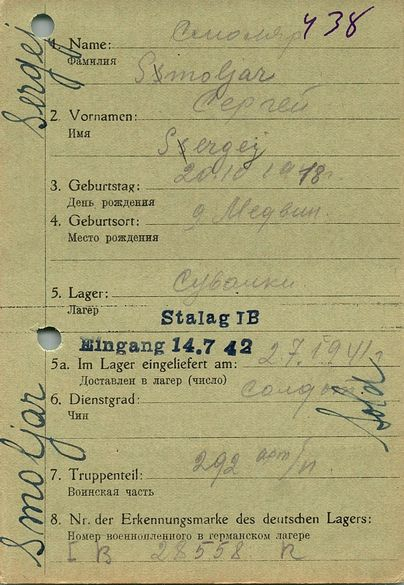 Смоляр 438
1. Name:
Фамилия
Smoljar
Сергей
2. Vornamen:
Имя
Sergej
20.10 1918г.
3. Geburtstag:
День рождения
д Медвин.
4. Geburtsort:
Место рождения
Сувалки
5. Lager:
Лагер
Stalag IB
Eingang 14.7 42
5a. Im Lager eingeliefert am: 2.7.1941г
Доставлен в лагер (число)
6. Dienstgrad: солдат
Чин
Sold
292 арт/п
7. Truppenteil:
Воинская часть
8. Nr. der Erkennungsmarke des deutschen Lagers:
Номер военнопленного в германском лагере
I B 28558 R
Sergej
Smoljar